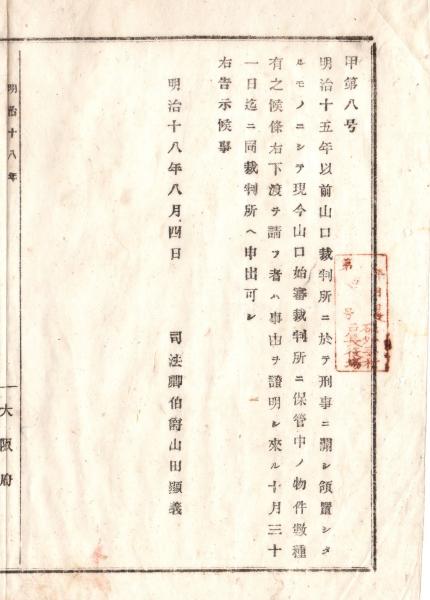 甲第八号
明治十五年以前山口裁判所ニ於テ刑事ニ關シ領置シタ
ルモノニシテ現今山口始審裁判所ニ保管中ノ物件数種
有之候條右下渡ヲ請フ者ハ事由ヲ證明シ來ル十月三十
一日迄ニ同裁判所ヘ申出可シ
右告示候事
明治十八年八月四日
司法卿伯爵山田顯義
明治十八年
大阪府
第 号